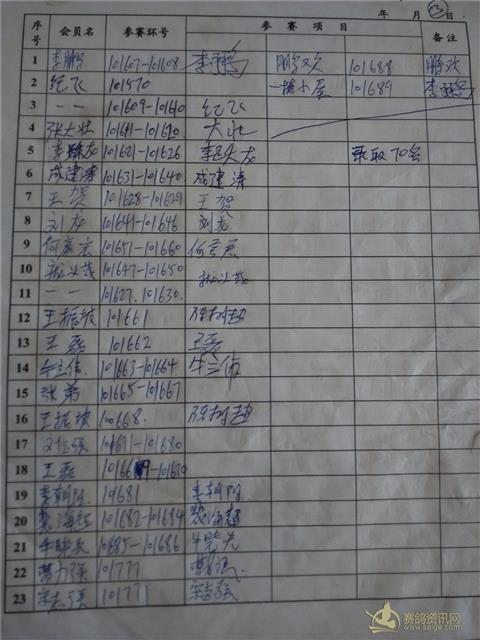 年 月 ③ 日
序号 会员名 参赛环号 参赛项目 备注
1 李鹏 101607-101608 李鹏 鹏欢 101688 鹏欢
2 纪飞 101570 101689 李鹏
3 一一 101609-101610 纪飞
4 张大壮 大壮
5 李 友 101621-101626 李 友 录取70名
6 成建涛 101631-101640 成建涛
7 王贺 101628-101629 王贺
8 刘龙 101641-101646 刘龙
9 何 宏 101651-101660 何
10 101647-101650
11 一一 101627.101630.
12 王振坡 101661 陈树超
13 王磊 101662 王磊
14 牛立伟 101663-101664 牛立伟
15 张弟 101665-101667
16 王振坡 100668. 陈树超
17 101671-101680
18 王磊 -101670
19 李朝阳 10681 李朝阳
20 海超 101682-101684 海超
21 牛 10685-101686 牛
22 曹力强 101777 曹 强
23 宋志强 101771 宋志强
赛鸽资讯网
www.saige.com